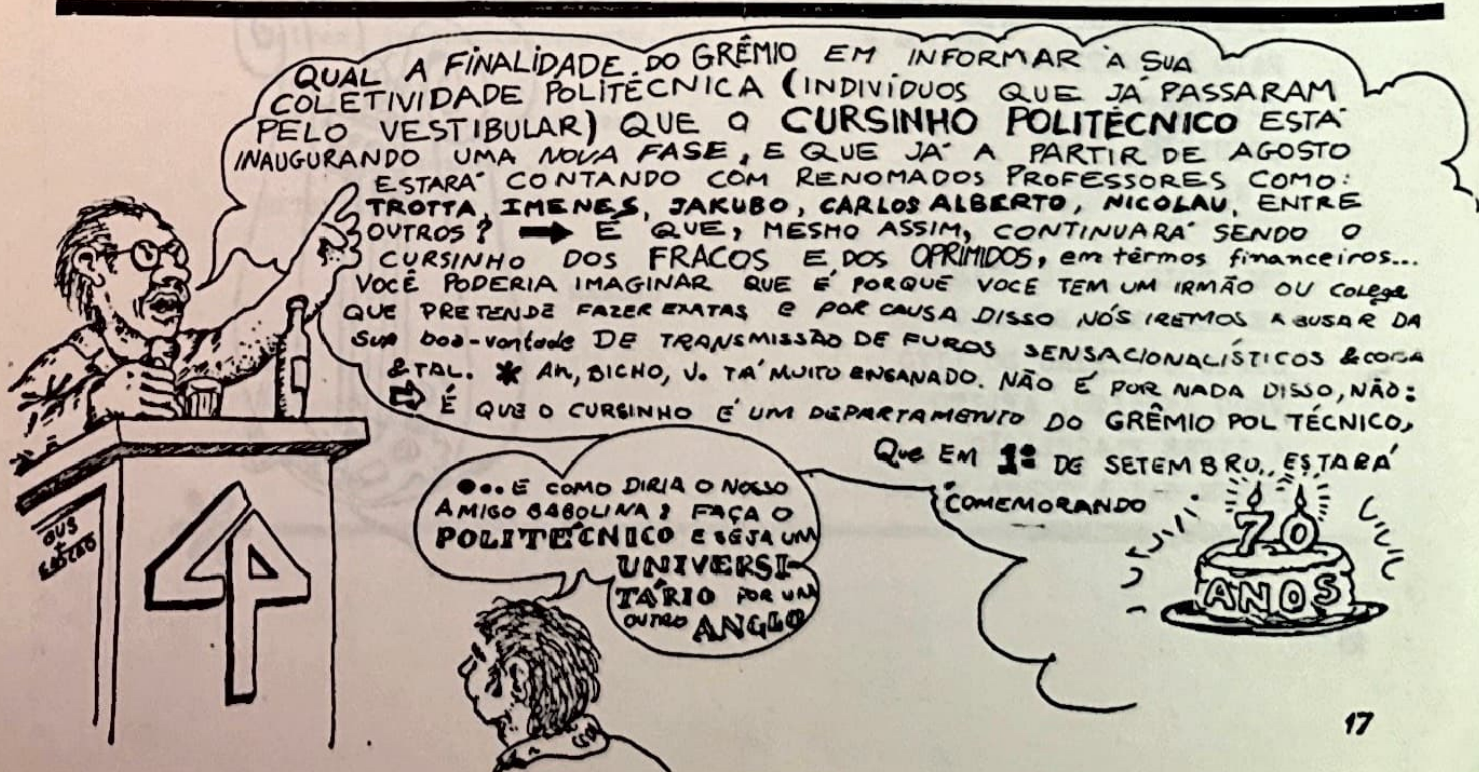 QUAL A FINALIDADE DO GRÊMIO EM INFORMAR À SUA
COLETIVIDADE POLITÉCNICA (INDIVÍDUOS QUE JÁ PASSARAM
PELO VESTIBULAR) QUE O CURSINHO POLITÉCNICO ESTÁ
INAUGURANDO UMA NOVA FASE, E QUE JÁ A PARTIR DE AGOSTO
ESTARÁ CONTANDO COM RENOMADOS PROFESSORES COMO:
TROTTA, IMENES, JAKUBO, CARLOS ALBERTO, NICOLAU, ENTRE
OUTROS? ➡ É QUE, MESMO ASSIM, CONTINUARÁ SENDO O
CURSINHO DOS FRACOS E DOS OPRIMIDOS, em têrmos financeiros...
VOCÊ PODERIA IMAGINAR QUE É PORQUE VOCÊ TEM UM IRMÃO OU colega
QUE PRETENDE FAZER EXATAS e POR CAUSA DISSO NÓS IREMOS ABUSAR DA
Sua boa-vontade DE TRANSMISSÃO DE FUROS SENSACIONALÍSTICOS & COISA
& TAL. * AH, BICHO, V. TÁ MUITO ENGANADO. NÃO É POR NADA DISSO, NÃO:
⇨ É QUE O CURSINHO É UM DEPARTAMENTO DO GRÊMIO POL TÉCNICO,
Que EM 1º DE SETEMBRO, ESTARÁ
COMEMORANDO
70
ANOS
...E COMO DIRIA O NOSSO
AMIGO BABOLINA: FAÇA O
POLITÉCNICO E SEJA UM
UNIVERSI-
TÁRIO POR UM
OUTRO ANGLO
GP
17